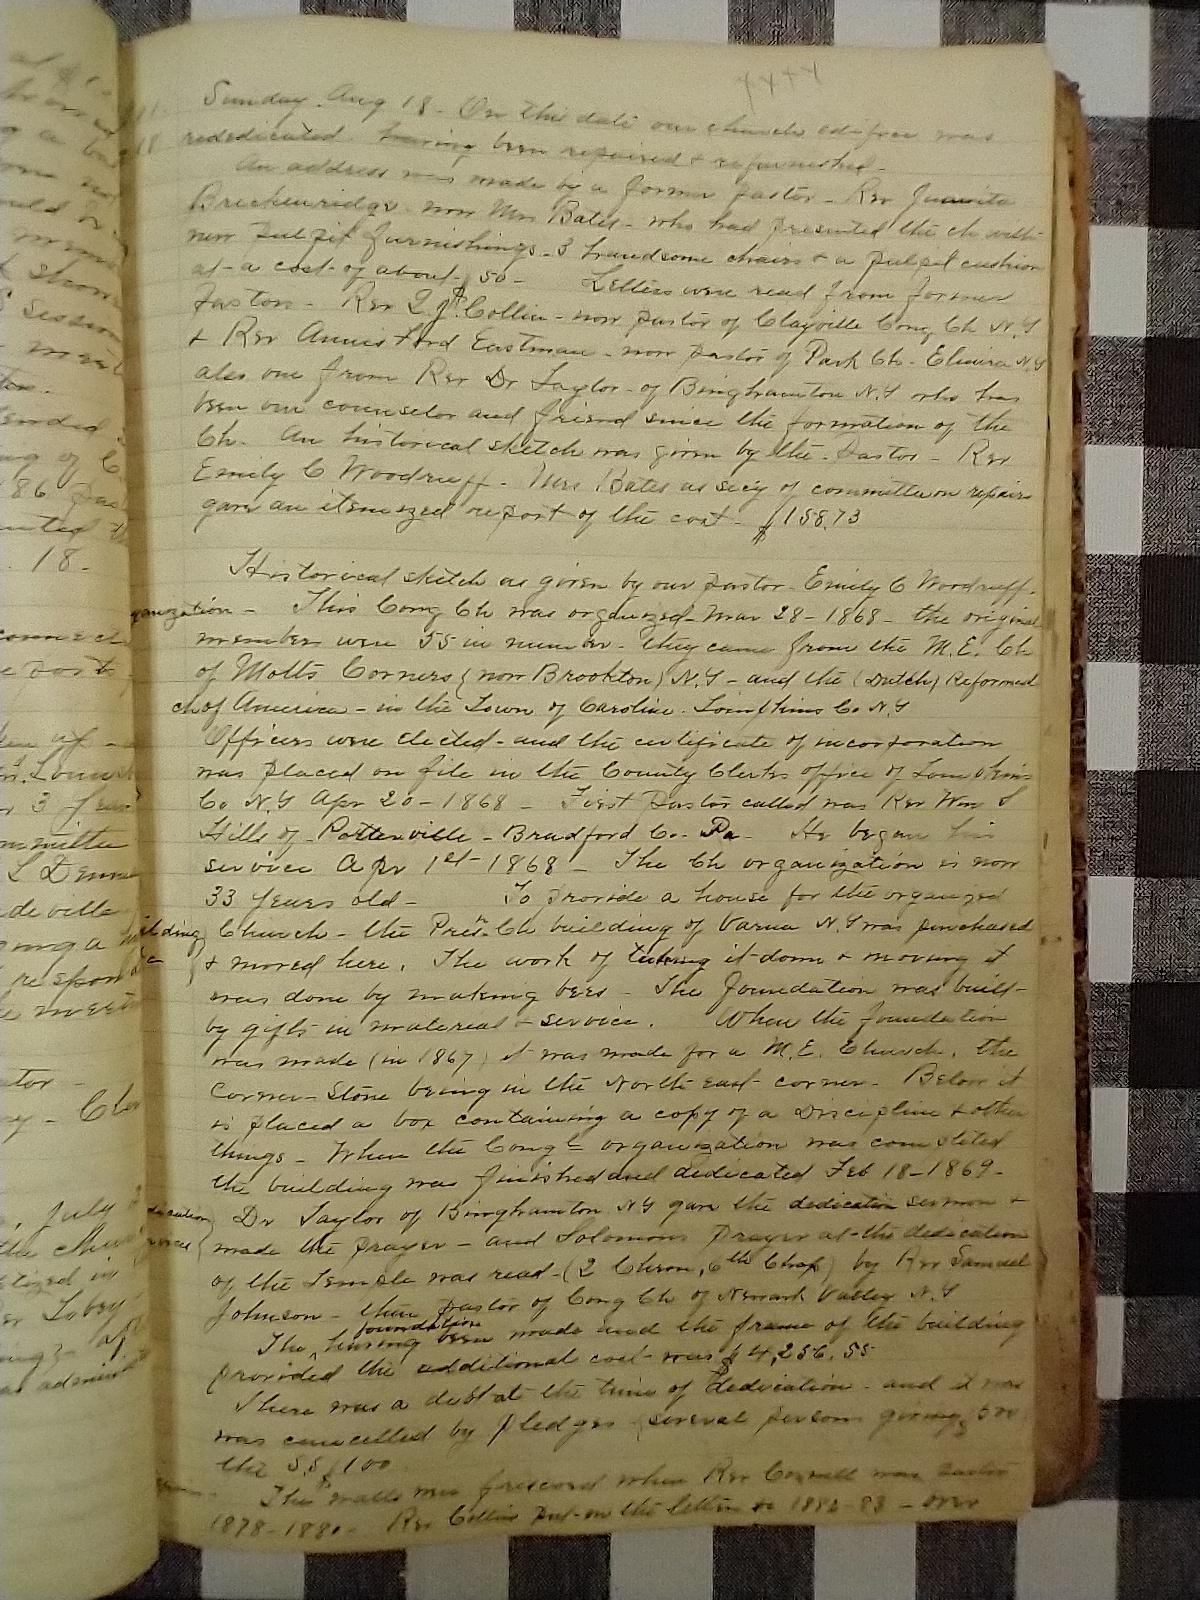 Sunday. Aug 18. On this date our church edifice was
rededicated having been repaired & refurnished.
An address was made by a former pastor - Rev Juanita
Breckenridge now Mrs Bates - who had presented the ch with
new pulpit furnishings - 3 handsome chairs & a pulpit cushion
at a cost of about $50 - Letters were read from former
Pastors - Rev Q. J. Collin - now pastor of Clayville Cong Ch N.Y
& Rev Annis Ford Eastman - now pastor of Park Ch - Elmira N.Y
also one from Rev Dr Taylor - of Binghamton N.Y who has
been our counselor and friend since the formation of the
Ch. An historical sketch was given by the Pastor - Rev
Emily C Woodruff. Mrs Bates as secy of committee on repairs
gave an itemized report of the cost - $158.73
Historical sketch as given by our pastor - Emily C Woodruff.
ganization - This Cong Ch was organized - Mar 28 - 1868 - the original
members were 55 in number - they came from the M.E. Ch
of Motts Corners (now Brookton) N.Y - and the (Dutch) Reformed
ch of America - in the Town of Caroline. Tompkins Co N.Y
Officers were elected - and the certificate of incorporation
was placed on file in the County Clerks office of Tompkins
Co N.Y Apr 20 - 1868 - First Pastor called was Rev Wm S
Hills of - Potterville - Bradford Co - Pa - He began his
service Apr 1st - 1868 - The Ch organization is now
33 years old - To provide a house for the organized
ilding Church - the Presn. Ch building of Varna N.Y was purchased
& moved here. The work of taking it down & moving it
was done by making bees - The foundation was built
by gifts in material & service. When the foundation
was made (in 1867) it was made for a M.E. Church. the
Corner-Stone being in the North east corner - Below it
is placed a box containing a copy of a Discipline & other
things - When the Congl organization was completed
the building was finished and dedicated Feb 18 - 1869 -
Dr Taylor of Binghamton NY gave the dedication sermon &
made the prayer - and Solomons Prayer at the dedication
of the Temple was read - (2 Chron, 6th Chap) by Rev Samuel
Johnson - then pastor of Cong Ch of Newark Valley N.Y
The foundation having been made and the frame of the building
provided the additional cost was $4,256.55
There was a debt at the time of dedication - and it was
was cancelled by pledges several persons giving $500
the S.S $100
The walls were frescoed when Rev was Pastor
1878 - 1880 - Rev Collin put on the letters in 1882 - 83 - over